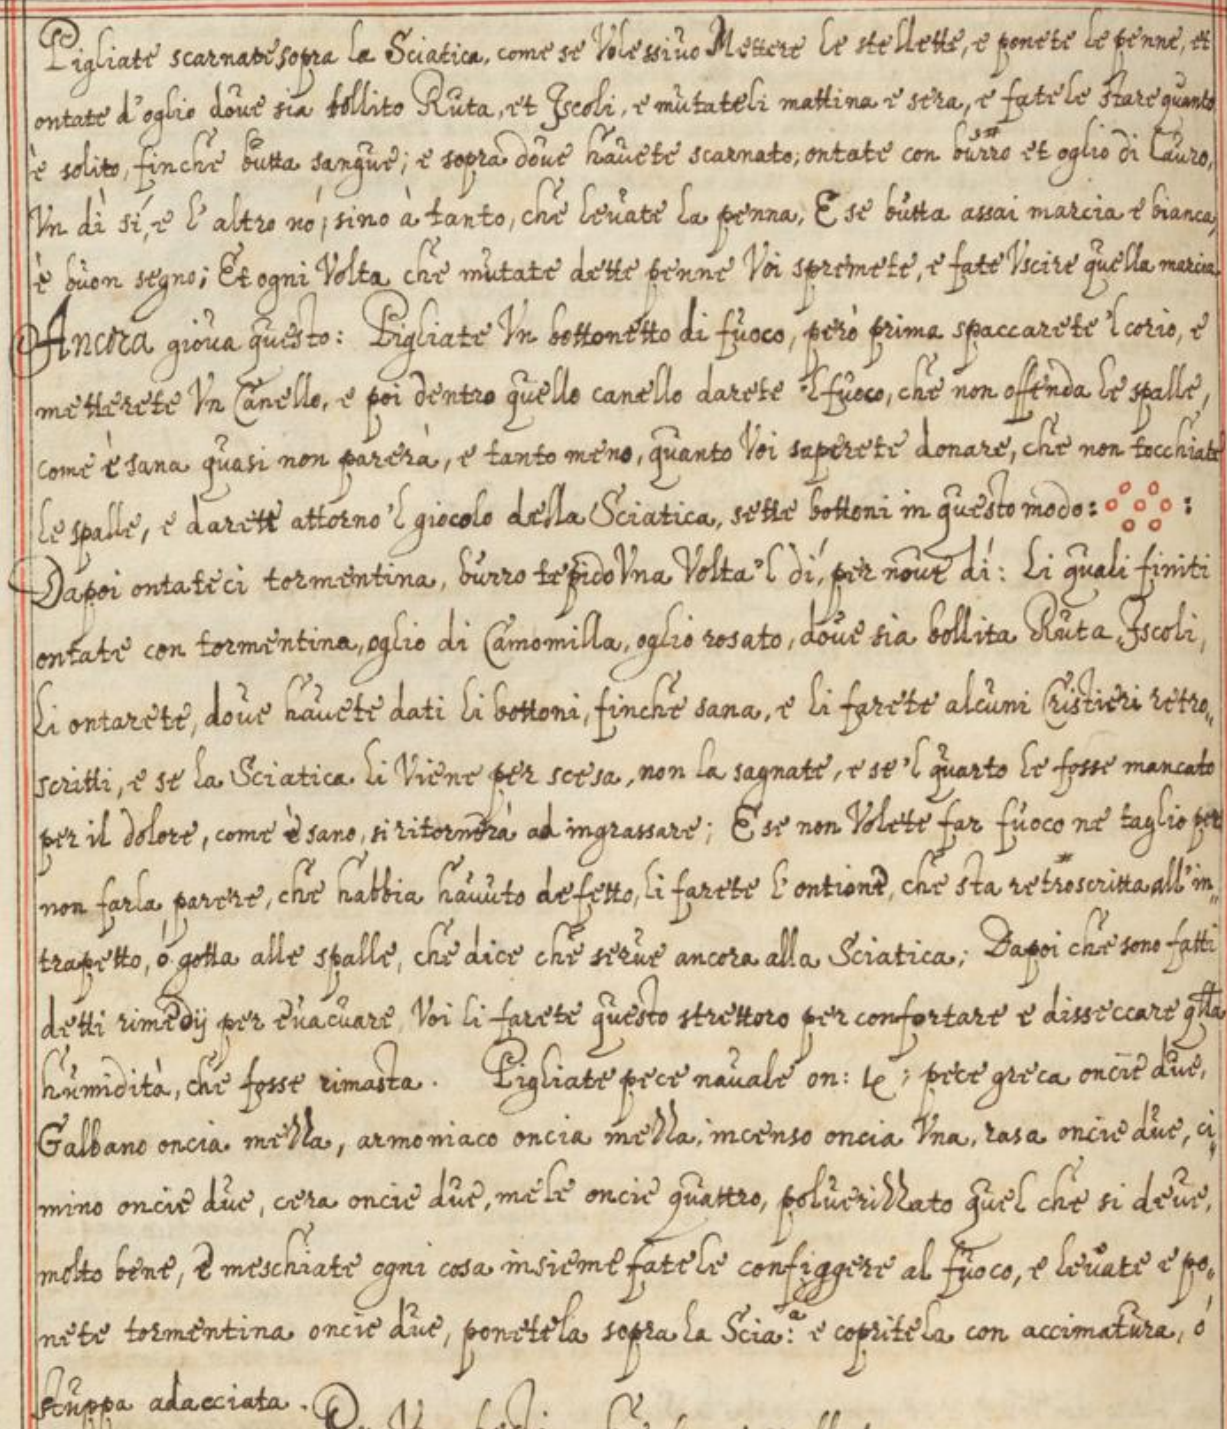 Pigliate scarnate sopra la Sciatica, come se Volessiuo Mettere le stellette, e ponete le penne, et
ontate d'oglio doue sia bollito Ruta, et Iscoli, e mutateli mattina e sera, e fatele stare quanto
è solito, finche butta sangue; e sopra doue hauete scarnato; ontate con burro et oglio di Lauro,
Vn dì sí, e l'altro nó, sino à tanto, che leuate la penna, E se butta assai marcia e bianca,
è buon segno; Et ogni Volta che mutate dette penne Voi spremete, e fate Vscire quella marcia.
Ancora gioua questo: Pigliate Vn bottonetto di fuoco, però prima spaccarete 'l corio, e
metterete Vn Canello, e poi dentro quello canello darete 'l fuoco, che non offenda le spalle,
come è sana quasi non parerà, e tanto meno, quanto Voi saperete donare, che non tocchiate
le spalle, e darete attorno 'l giocolo della Sciatica, sette bottoni in questo modo: :
Dapoi ontateci tormentina, burro tepido Vna Volta 'l dí, per noue dí: Li quali finiti
ontate con tormentina, oglio di Camomilla, oglio rosato, doue sia bollita Ruta, Iscoli,
Li ontarete, doue hauete dati li bottoni, finche sana, e li farete alcuni Cristieri retro,,
scritti, e se la Sciatica li Viene per scesa, non la sagnate, e se 'l quarto le fosse mancato
per il dolore, come è sano, si ritornerà ad ingrassare; E se non Volete far fuoco ne taglio per
non farla parere, che habbia hauuto defetto, li farete l'ontione, che sta retroscritta all'in,,
trapetto, ó gotta alle spalle, che dice che serue ancora alla Sciatica; Dapoi che sono fatti
detti rimedij per euacuare Voi li farete questo strettoro per confortare e disseccare qlla
humidità, che fosse rimasta. Pigliate pece nauale on: ; pece greca oncie due,
Galbano oncia mezza, armoniaco oncia mezza, incenso oncia Vna, rasa oncie due, ci,,
mino oncie due, cera oncie due, mele oncie quattro, poluerizzato quel che si deue,
molto bene, e meschiate ogni cosa insieme fatele configgere al fuoco, e leuate e po,,
nete tormentina oncie due, ponetela sopra la Scia:ª e copritela con accimatura, ó
stuppa adacciata.